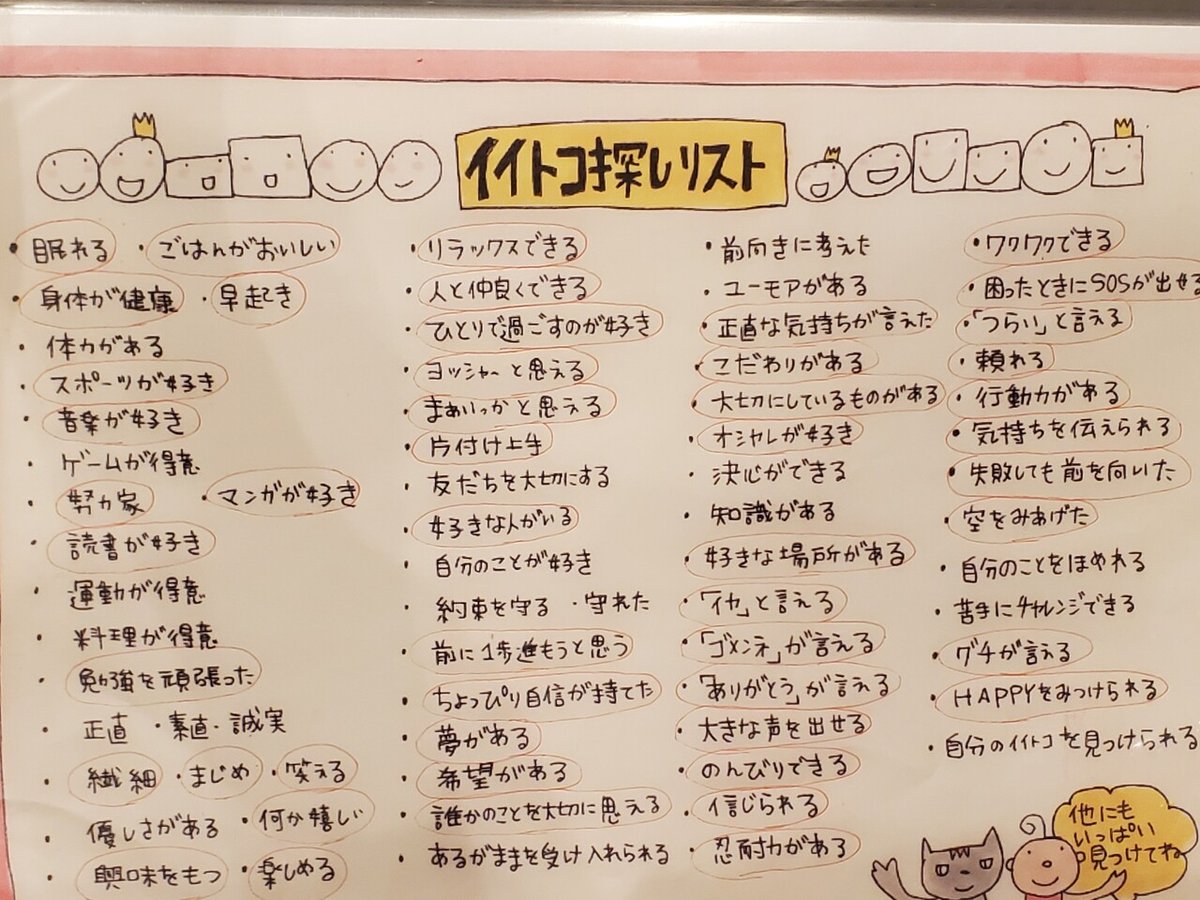 イイトコ探しリスト
・眠れる ・ごはんがおいしい
・身体が健康 ・早起き
・体力がある
・スポーツが好き
・音楽が好き
・ゲームが得意
・努力家 ・マンガが好き
・読書が好き
・運動が得意
・料理が得意
・勉強を頑張った
・正直 ・素直・誠実
・繊細 ・まじめ ・笑える
・優しさがある ・何か嬉しい
・興味をもつ ・楽しめる
・リラックスできる
・人と仲良くできる
・ひとりで過ごすのが好き
・ヨッシャーと思える
・まぁいっかと思える
・片付け上手
・友だちを大切にする
・好きな人がいる
・自分のことが好き
・約束を守る ・守れた
・前に1歩進もうと思う
・ちょっぴり自信が持てた
・夢がある
・希望がある
・誰かのことを大切に思える
・あるがままを受け入れられる
・前向きに考えた
・ユーモアがある
・正直な気持ちが言えた
・こだわりがある
・大切にしているものがある
・オシャレが好き
・決心ができる
・知識がある
・好きな場所がある
・「イヤ」と言える
・「ゴメンネ」が言える
・「ありがとう」が言える
・大きな声を出せる
・のんびりできる
・信じられる
・忍耐力がある
・ワクワクできる
・困ったときにSOSが出せる
・「つらい」と言える
・頼れる
・行動力がある
・気持ちを伝えられる
・失敗しても前を向いた
・空をみあげた
・自分のことをほめれる
・苦手にチャレンジできる
・グチが言える
・HAPPYをみつけられる
・自分のイイトコを見つけられる
他にも
いっぱい
見つけてね